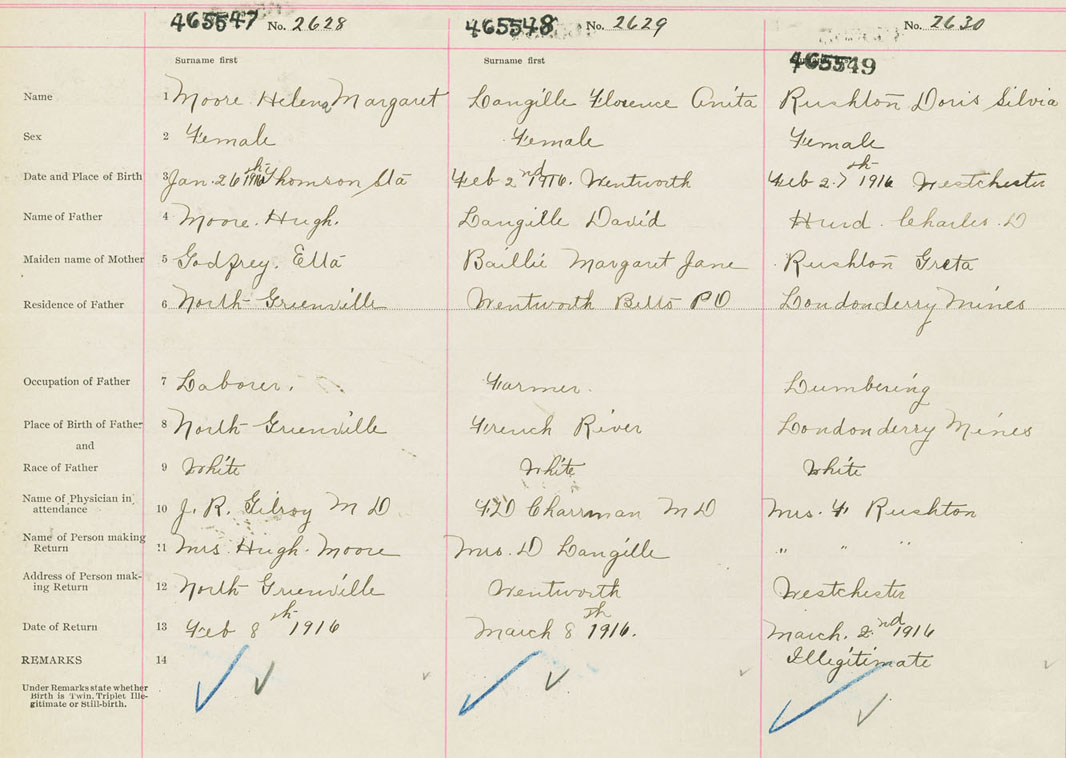 465547 No. 2628 465548 No. 2629 No. 2630
Surname first Surname first 465549
Name 1 Moore Helena Margaret Langille Florence Anita Rushton Doris Silvia
Sex 2 Female Female Female
Date and Place of Birth 3 Jan. 26th 1916 Thomson Sta Feb 2nd 1916. Wentworth Feb 27th 1916 Westchester
Name of Father 4 Moore. Hugh. Langille David Hurd. Charles. D
Maiden name of Mother 5 Godfrey. Etta Baillie Margaret Jane Rushton Greta
Residence of Father 6 North Greenville Wentworth Betts P O Londonderry Mines
Occupation of Father 7 Laborer. Farmer. Lumbering
Place of Birth of Father 8 North Greenville French River Londonderry Mines
and
Race of Father 9 White White White
Name of Physician in
attendance 10 J. R. Gilroy M D F D Charman M D Mrs. F Rushton
Name of Person making
Return 11 Mrs Hugh Moore Mrs. D Langille " " "
Address of Person mak-
ing Return 12 North Greenville Wentworth Westchester
Date of Return 13 Feb 8th 1916 March 8th 1916. March. 2nd 1916
REMARKS 14 Illegitimate
Under Remarks state whether
Birth is Twin, Triplet Ille-
gitimate or Still-birth.